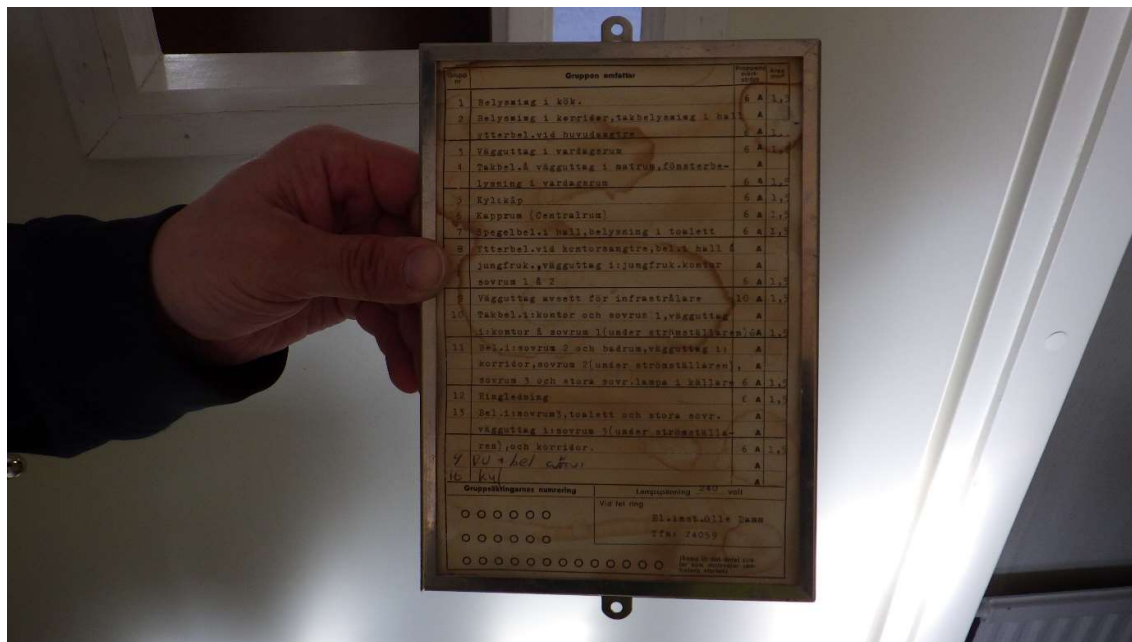 Grupp nr Gruppen omfattar Area mm²
1 Belysning i kök. 6 A 1,5
2 Belysning i korridor,takbelysning i hall A
ytterbel.vid huvudangtre 6 A 1,5
3 Vägguttag i vardagsrum 6 A 1,5
4 Takbel.& vägguttag i matrum,fönsterbe- A
lysning i vardagsrum 6 A 1,5
5 Kylskåp 6 A 1,5
6 Kapprum (Centralrum) 6 A 1,5
7 Spegelbel.i hall,belysning i toalett 6 A 1,5
8 Ytterbel.vid kontorsangtre,bel.i hall & A
jungfruk.,vägguttag i:jungfruk.kontor A
sovrum 1 & 2 6 A 1,5
9 Vägguttag avsett för infrastrålare 10 A 1,5
10 Takbel.i:kontor och sovrum 1,vägguttag A
i:kontor & sovrum 1(under strömställaren) 6A 1,5
11 Bel.i:sovrum 2 och badrum,vägguttag i: A
korridor,sovrum 2(under strömställaren), A
sovrum 3 och stora sovr.lampa i källare 6 A 1,5
12 Ringledning 6 A 1,5
13 Bel.i:sovrum3,toalett och stora sovr. A
vägguttag i:sovrum 3(under strömställa- A
ren),och korridor. 6 A 1,5
9 VU + bel A
10 kyl A
Gruppsäkringarnas numrering Lampspänning 240 volt
Vid fel ring
El.inst.Olle Damm
Tfn: 24059